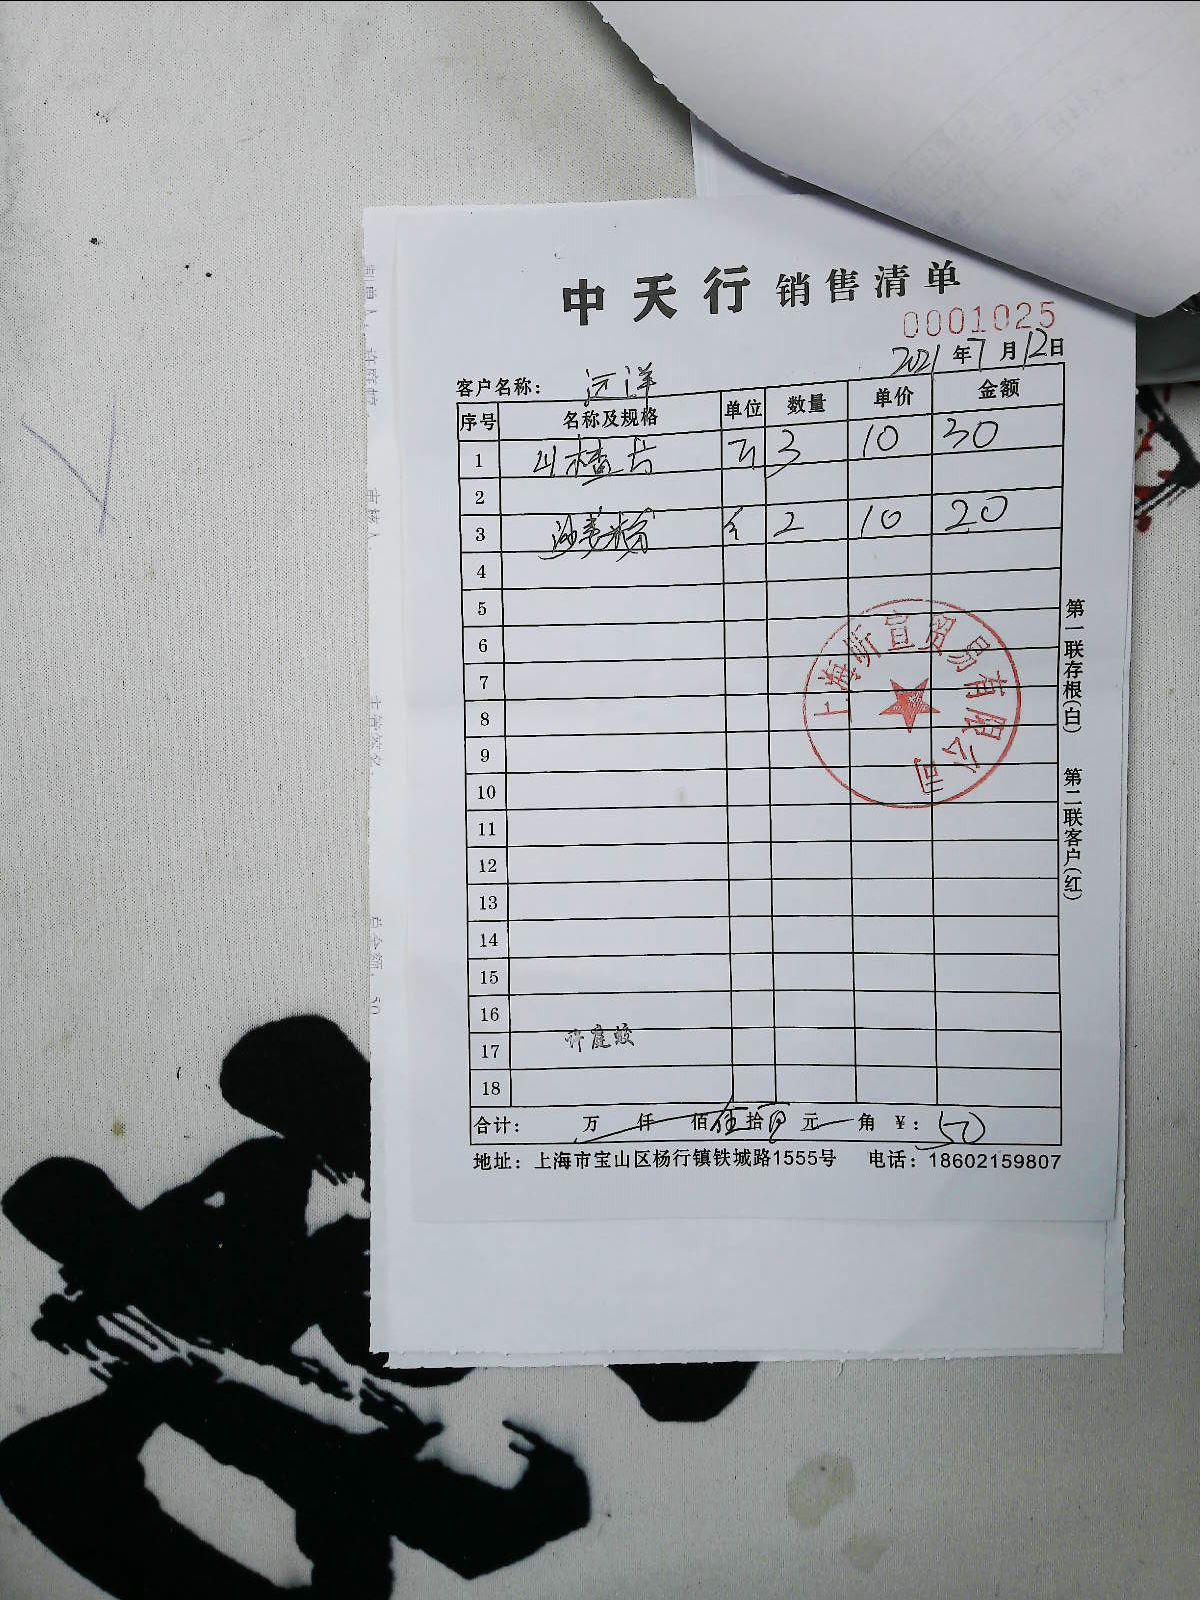 中天行 销售清单
0001025
2021年7月12日
客户名称： 远洋
序号 名称及规格 单位 数量 单价 金额
1 山楂片 3 10 30
2
3 沙姜粉 2 10 20
4
5
6
7
8
9
10
11
12
13
14
15
16
17 许庭蛟
18
合计： 万 仟 佰 伍 拾 元 角 ￥：50
地址：上海市宝山区杨行镇铁城路1555号 电话：18602159807
第一联存根(白) 第二联客户(红)
上海昕宣贸易有限公司